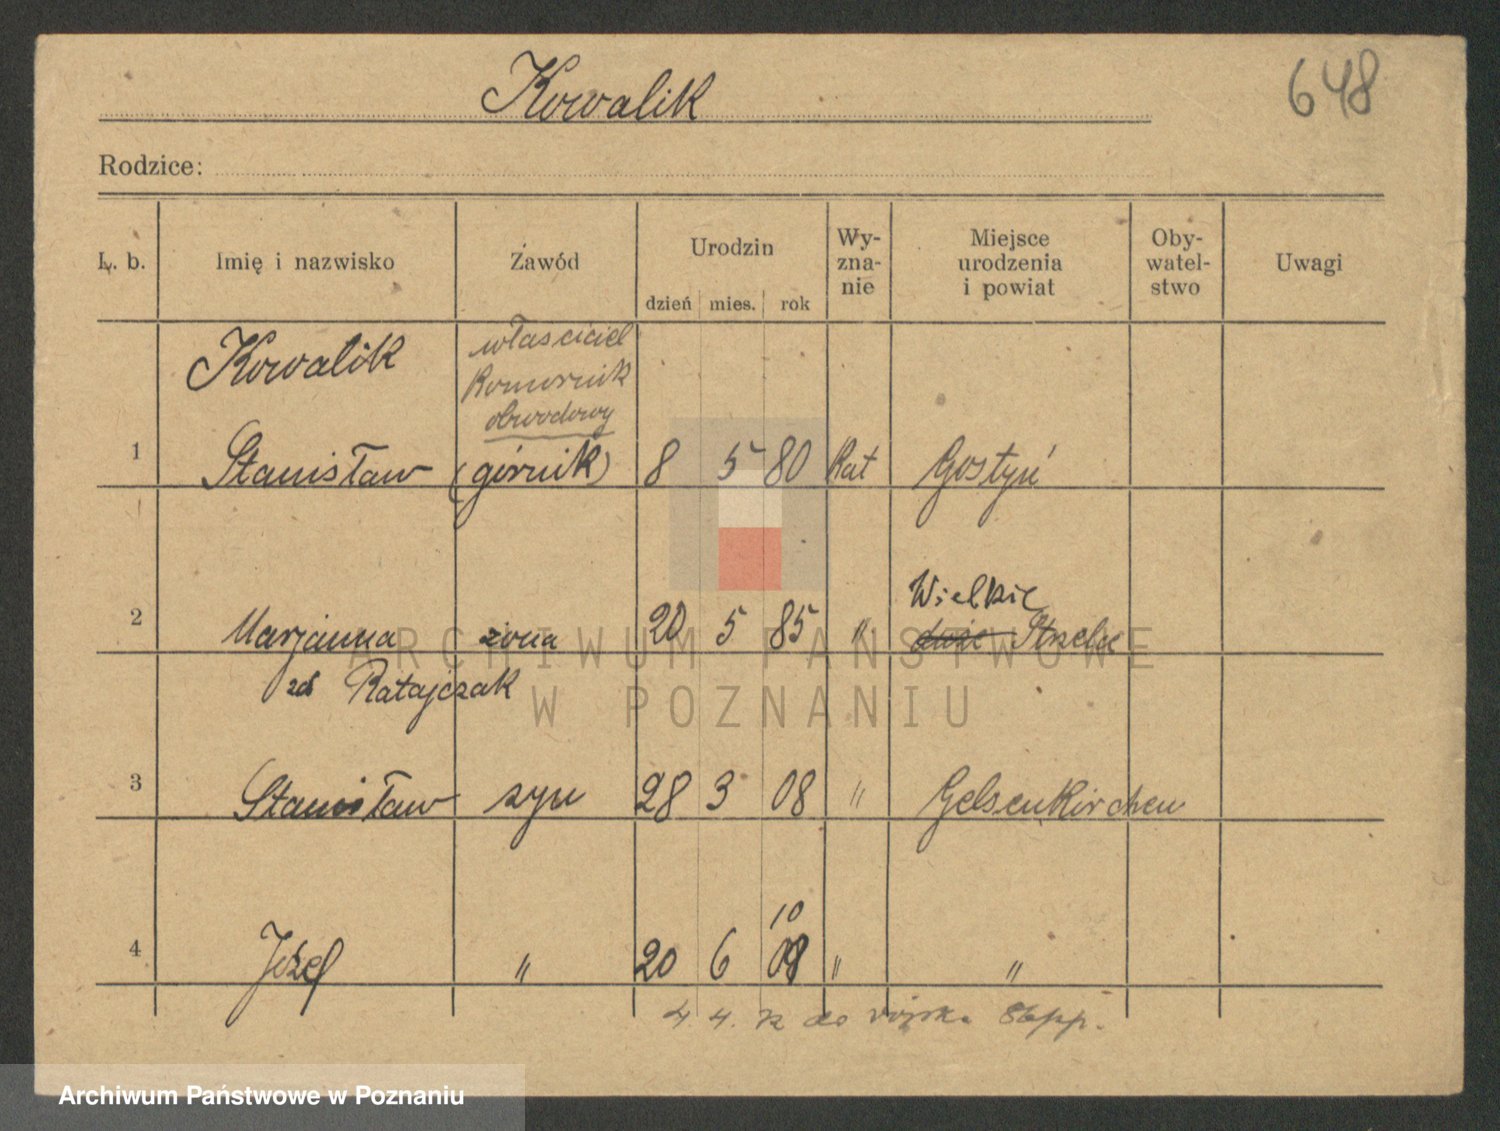 Kowalik
648
Rodzice:
L. b. Imię i nazwisko Zawód Urodzin dzień mies. rok Wy-zna-nie Miejsce urodzenia i powiat Oby-watel-stwo Uwagi
Kowalik właściciel
Komornik
obwodowy
1 Stanisław (górnik) 8 5 80 Kat Gostyń
Wielkie
2 Marjanna żona 20 5 85 " duże Strzelce
zd Ratajczak
3 Stanisław syn 28 3 08 " Gelsenkirchen
10
4 Józef " 20 6 08 " "
4. 4. 32 do wojska 86pp.
ARCHIWUM PAŃSTWOWE
W POZNANIU
Archiwum Państwowe w Poznaniu